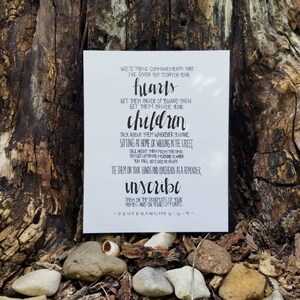 WRITE THESE COMMANDMENTS THAT
I'VE GIVEN YOU TODAY ON YOUR
hearts
GET THEM INSIDE OF YOU AND THEN
GET THEM INSIDE YOUR
children
TALK ABOUT THEM WHEREVER YOU ARE,
SITTING AT HOME OR WALKING IN THE STREET;
TALK ABOUT THEM FROM THE TIME
YOU GET UP IN THE MORNING TO WHEN
YOU FALL INTO BED AT NIGHT.
TIE THEM ON YOUR HANDS AND FOREHEADS AS A REMINDER;
inscribe
THEM ON THE DOORPOSTS OF YOUR
HOMES AND ON YOUR CITY GATES.
- DEUTERONOMY 6:6-9 -